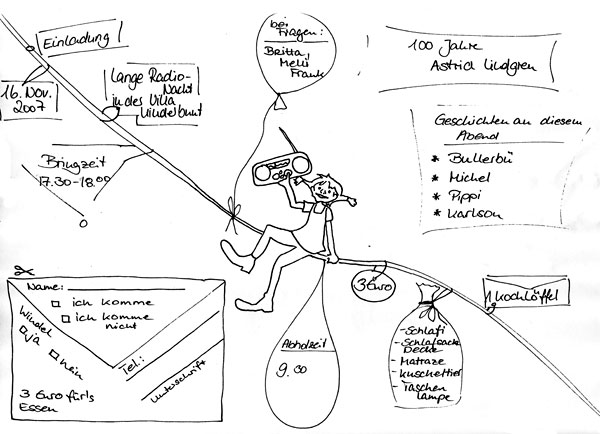 Einladung
16. Nov.
2007
Lange Radio-
Nacht
in des Villa
Kinderbunt
Bringzeit
17.30-18.00
bei
Fragen:
Britta,
Melli
Frank
100 Jahre
Astrid Lindgren
Geschichten an diesem
Abend
* Bullerbü
* Michel
* Pippi
* Karlson
3 Euro
1 Kochlöffel
- Schlafi
- Schlafsack
Decke
- Matraze
- Kuscheltier
- Taschen
lampe
Abholzeit
9.00
Name:
ich komme
ich komme
nicht
Windel
ja
nein
Tel.:
Unterschrift
3 Euro für's
Essen